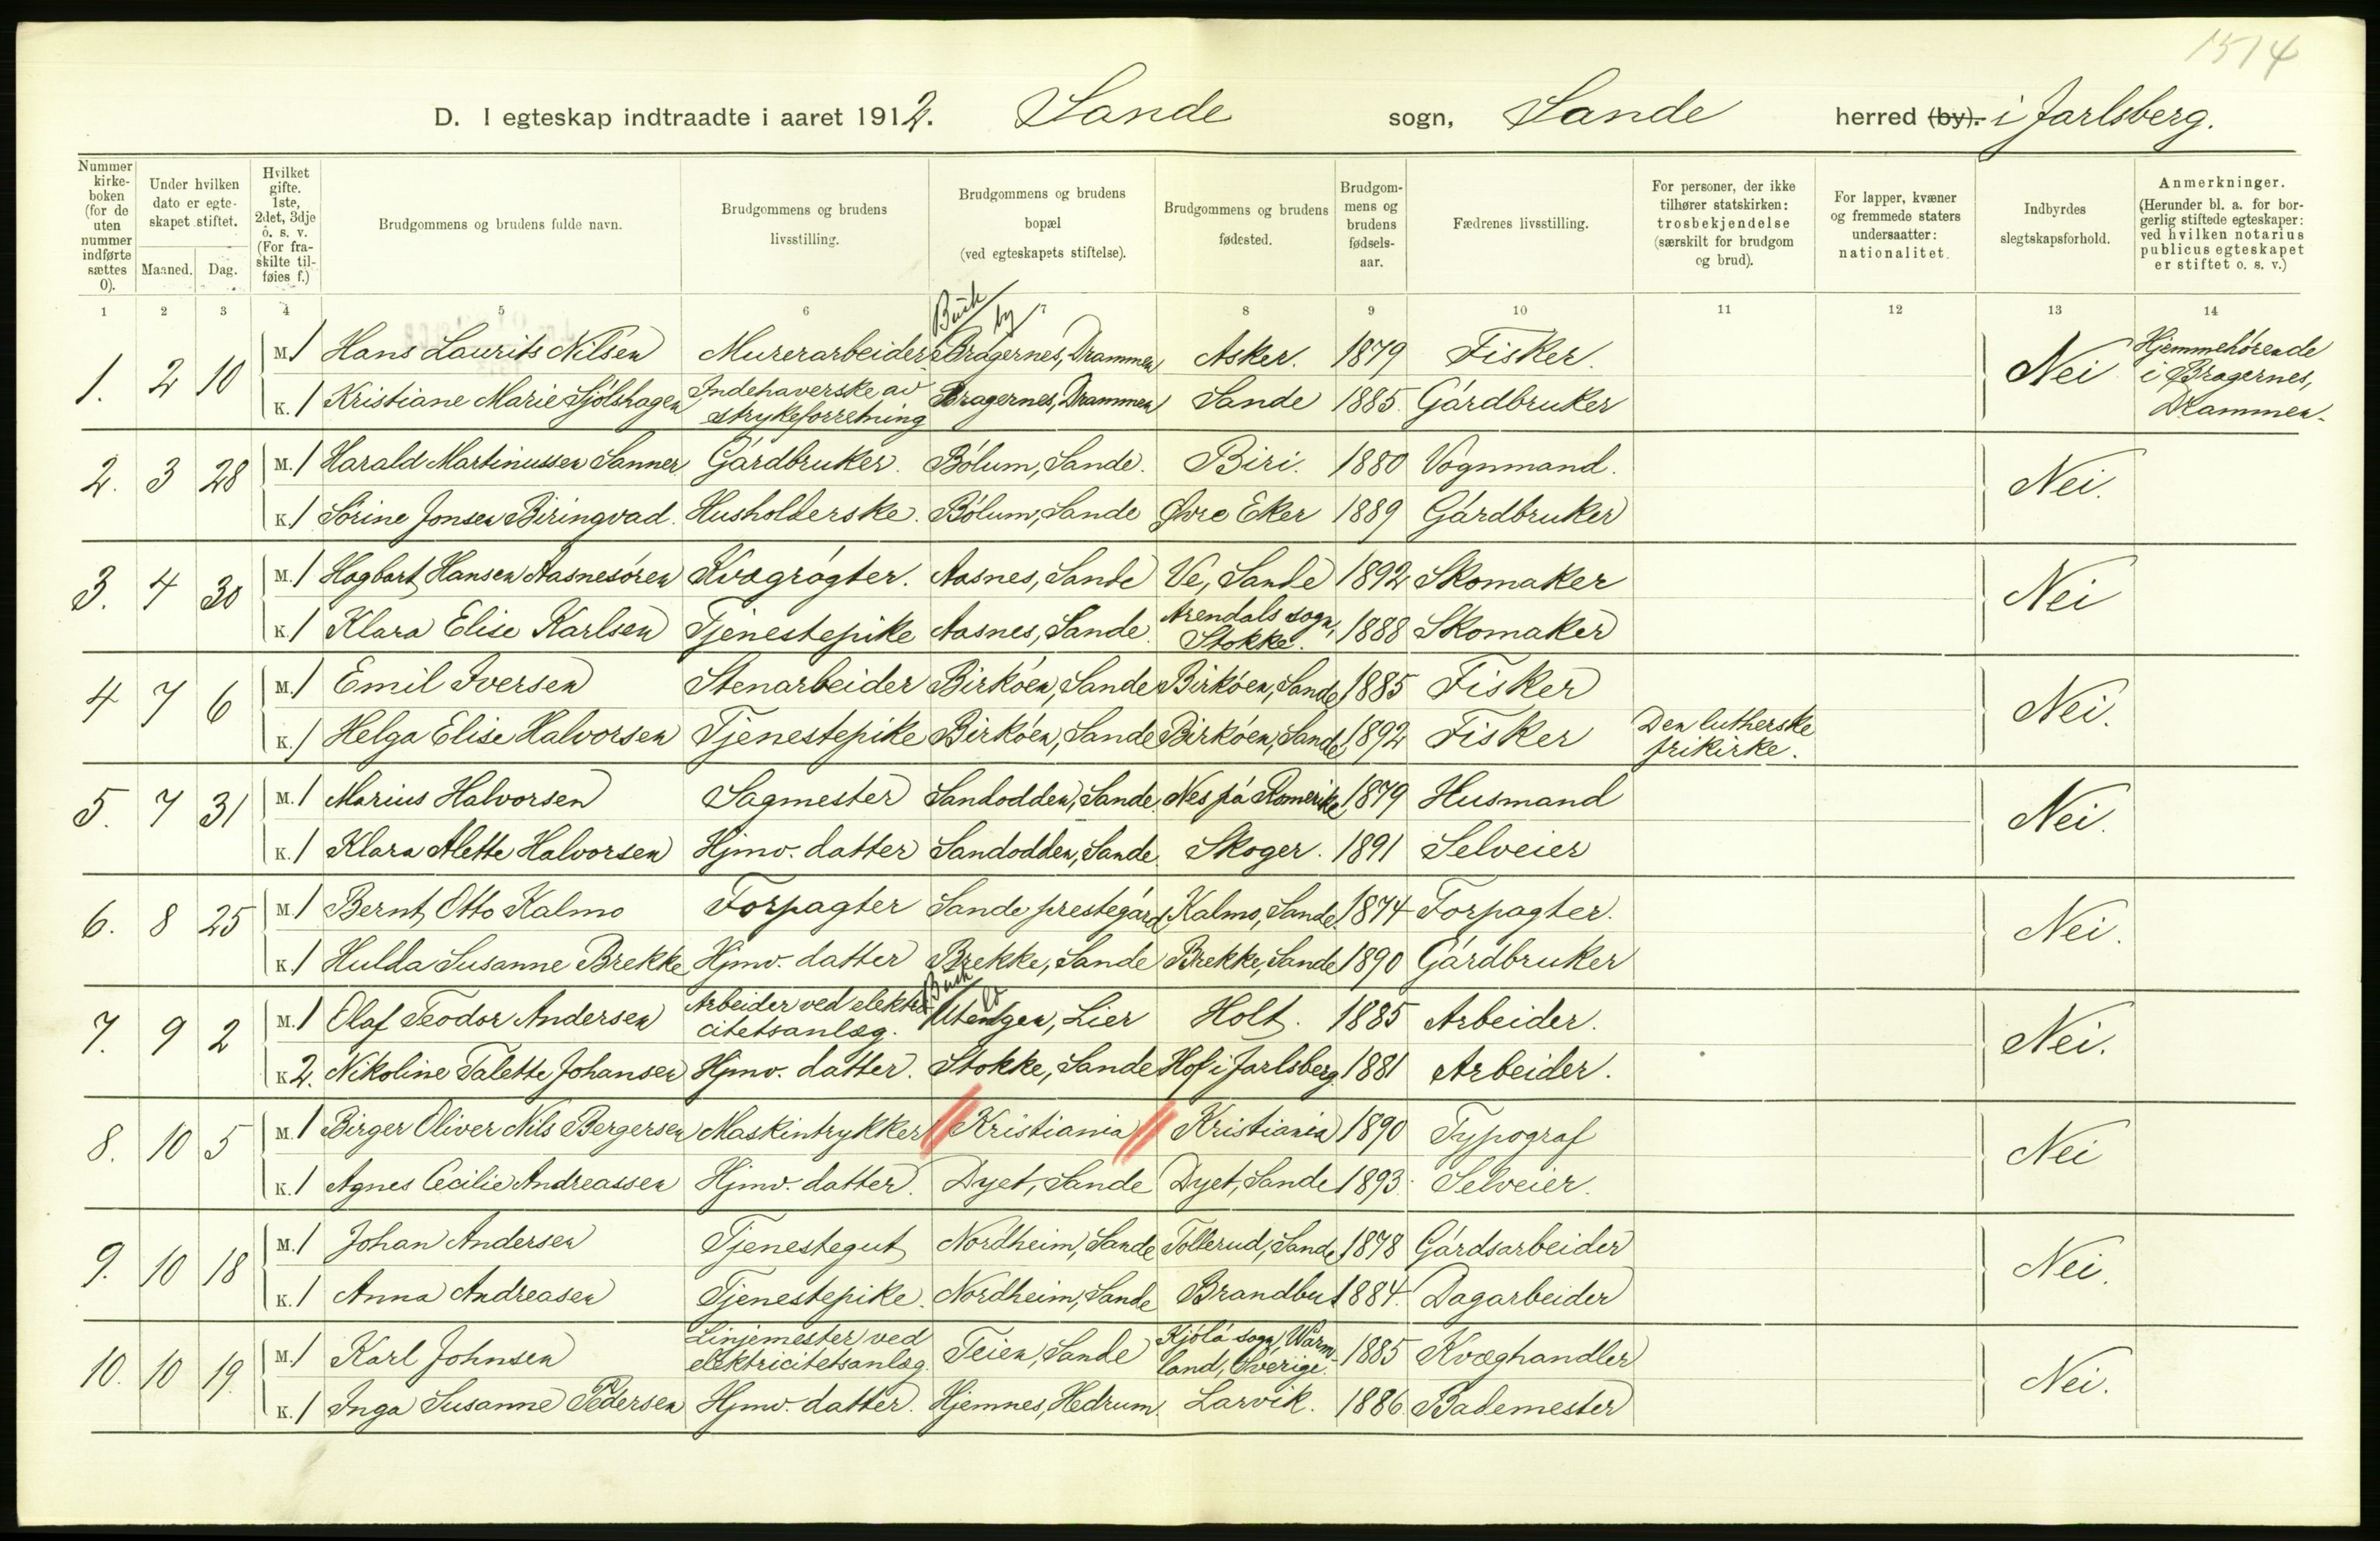 1514
D. I egteskap indtraadte i aaret 1912. Sande sogn, Sande herred (by). i Jarlsberg.
Nummer kirkeboken (for de uten nummer indførte sættes 0).
Under hvilken dato er egteskapet stiftet.
Maaned. Dag.
Hvilket gifte. 1ste, 2det, 3dje o. s. v. (For fraskilte tilføies f.)
Brudgommens og brudens fulde navn.
Brudgommens og brudens livsstilling.
Brudgommens og brudens bopæl (ved egteskapets stiftelse).
Brudgommens og brudens fødested.
Brudgommens og brudens fødselsaar.
Fædrenes livsstilling.
For personer, der ikke tilhører statskirken: trosbekjendelse (særskilt for brudgom og brud).
For lapper, kvæner og fremmede staters undersaatter: nationalitet.
Indbyrdes slegtskapsforhold.
Anmerkninger. (Herunder bl. a. for borgerlig stiftede egteskaper: ved hvilken notarius publicus egteskapet er stiftet o. s. v.)
1 2 3 4 5 6 7 8 9 10 11 12 13 14
Busk by
1. 2 10 M. 1 Hans Laurits Nilsen Murerarbeider Bragernes, Drammen Asker. 1879 Fisker. Nei Hjemmehörende i Bragernes, Drammen.
K. 1 Kristiane Marie Sjölshagen Indehaverske av strykeforretning Bragernes, Drammen Sande 1885. Gårdbruker
2. 3 28 M. 1 Harald Martinussen Sanner Gårdbruker. Bólum, Sande. Biri. 1880 Vognmand. Nei.
K. 1 Sörine Jonsen Biringvad. Husholderske. Bólum, Sande Øvre Eker 1889 Gårdbruker
3. 4 30 M. 1 Hagbart Hansen Aasnesören Kvægrögter. Aasnes, Sande Ve, Sande 1892 Skomaker Nei
K. 1 Klara Elise Karlsen Tjenestepike Aasnes, Sande. Arendals sogn, Stokke. 1888 Skomaker
4 7 6 M. 1 Emil Iversen Stenarbeider Birköen, Sande Birköen, Sande 1885 Fisker Nei.
K. 1 Helga Elise Halvorsen Tjenestepike Birköen, Sande Birköen, Sande 1892 Fisker Den lutherske frikirke.
5. 7 31 M. 1 Marius Halvorsen Sagmester Sandodden, Sande. Nes på Romerike 1879 Husmand Nei.
K. 1 Klara Alette Halvorsen Hjmv. datter Sandodden, Sande. Skoger. 1891 Selveier
6. 8 25 M. 1 Bernt Otto Kalmo Forpagter Sande prestegård Kalmo, Sande. 1874 Forpagter. Nei.
K. 1 Hulda Susanne Brekke Hjmv. datter Brekke, Sande Brekke, Sande 1890 Gårdbruker
Busk
7. 9 2 M. 1 Olaf Teodor Andersen Arbeider ved elektricitetsanlæg. Utengen, Lier Holt. 1885 Arbeider. Nei.
K. 2. Nikoline Talette Johansen Hjmv. datter. Stokke, Sande Hof i Jarlsberg. 1881 Arbeider.
8. 10 5 M. 1 Birger Oliver Nils Bergersen Maskintrykker Kristiania Kristiania 1890 Typograf Nei
K. 1 Agnes Cecilie Andreassen Hjmv. datter. Dyet, Sande Dyet, Sande 1893. Selveier.
9. 10 18 M. 1 Johan Andersen Tjenestegut Nordheim, Sande Tollerud, Sande, 1878 Gårdsarbeider Nei.
K. 1 Anna Andreasen Tjenestepike. Nordheim, Sande Brandbu 1884. Dagarbeider
10. 10 19. M. 1 Karl Johnsen Linjemester ved elektricitetsanlæg. Teien, Sande Kjölå sogn, Wärmland, Sverige. 1885 Kvæghandler Nei.
K. 1 Inga Susanne Pedersen Hjmv. datter. Hjemnes, Hedrum. Larvik. 1886. Bademester